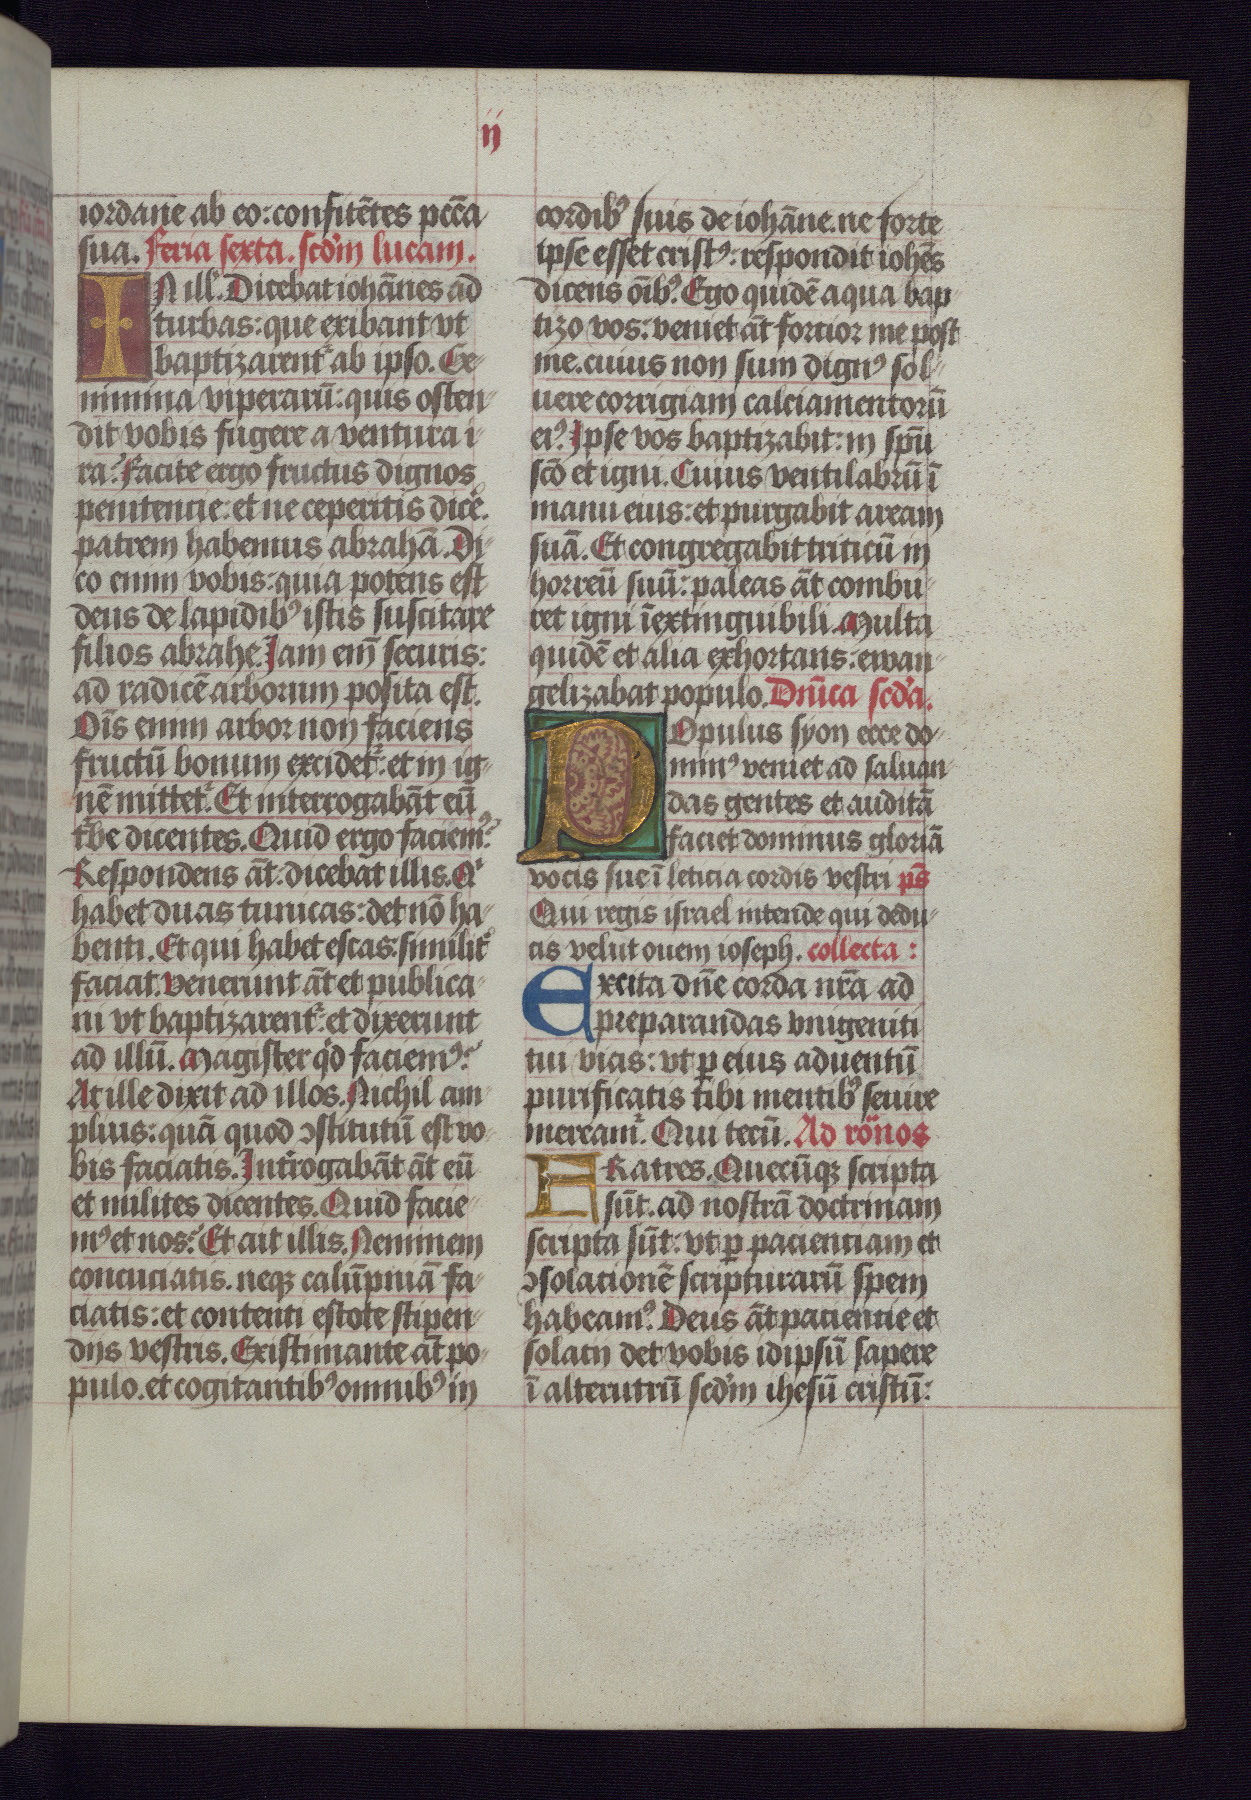 ij
6
iordane ab eo: confitētes pcc̄a
sua. Feria sexta. scd'm lucam.
IN ill'. Dicebat iohānes ad
turbas: que exibant vt
baptizarent᷑ ab ipso. Ge-
nimina viperarū: quis osten-
dit vobis fugere a ventura i-
ra? Facite ergo fructus dignos
penitencie: et ne ceperitis dicē.
patrem habemus abrahā. Di-
co enim vobis: quia potens est
deus de lapidib⁹ istis suscitare
filios abrahe. Jam em̄ securis:
ad radicē arborum posita est.
Oīs enim arbor non faciens
fructū bonum excidet᷑: et in ig-
nē mittet᷑. Et interrogabāt eū
t'be dicentes. Quid ergo faciem⁹?
Respondens āt: dicebat illis. Qⁱ
habet duas tunicas: det nō ha-
benti. Et qui habet escas: similit᷑
faciat. Venerunt āt et publica-
ni vt baptizarent᷑: et dixerunt
ad illū. Magister q'd faciem⁹?
At ille dixit ad illos. Nichil am-
plius: quā quod ɔstitutū est vo-
bis faciatis. Int'rogabāt āt eū
et milites dicentes. Quid facie-
m⁹ et nos? Et ait illis. Neminem
concuciatis. neqʒ calūpniā fa-
ciatis: et contenti estote stipen-
dijs vestris. Existimante āt po-
pulo. et cogitantib⁹ omnib⁹ in
cordib⁹ suis de iohāne. ne forte
ipse esset crist⁹: respondit iohēs
dicens oīb⁹. Ego quidē aqua bap-
tizo vos: veniet āt forcior me post
me. cuius non sum dign⁹ sol-
uere corrigiam calciamentorū
ei⁹. Ipse vos baptizabit: in spū
scō et igni. Cuius ventilabrū ī
manu eius: et purgabit aream
suā. Et congregabit triticū in
horreū suū: paleas āt combu-
ret igni īextinguibili. Multa
quidē et alia exhortans: ewan-
gelizabat populo. Dn̄ica scd'a.
POpulus syon ecce do-
min⁹ veniet ad saluan-
das gentes et auditā
faciet dominus gloriā
vocis sue ī leticia cordis vestri ps̄
Qui regis israel intende qui dedu-
cis velut ouem ioseph. collecta:
Excita dn̄e corda nr̄a ad
preparandas vnigeniti
tui vias: vt ꝑ eius aduentū
purificatis tibi mentib⁹ seruire
meream᷑. Qui tecū. Ad rōnos
FRatres. Quecūqʒ scripta
sūt. ad nostrā doctrinam
scripta sūt: vt ꝑ pacienciam et
ɔsolationē scripturarū spem
habeam⁹. Deus āt paciencie et
solacij det vobis idipsū sapere
ī alterutrū scd'm ihesū cristū: